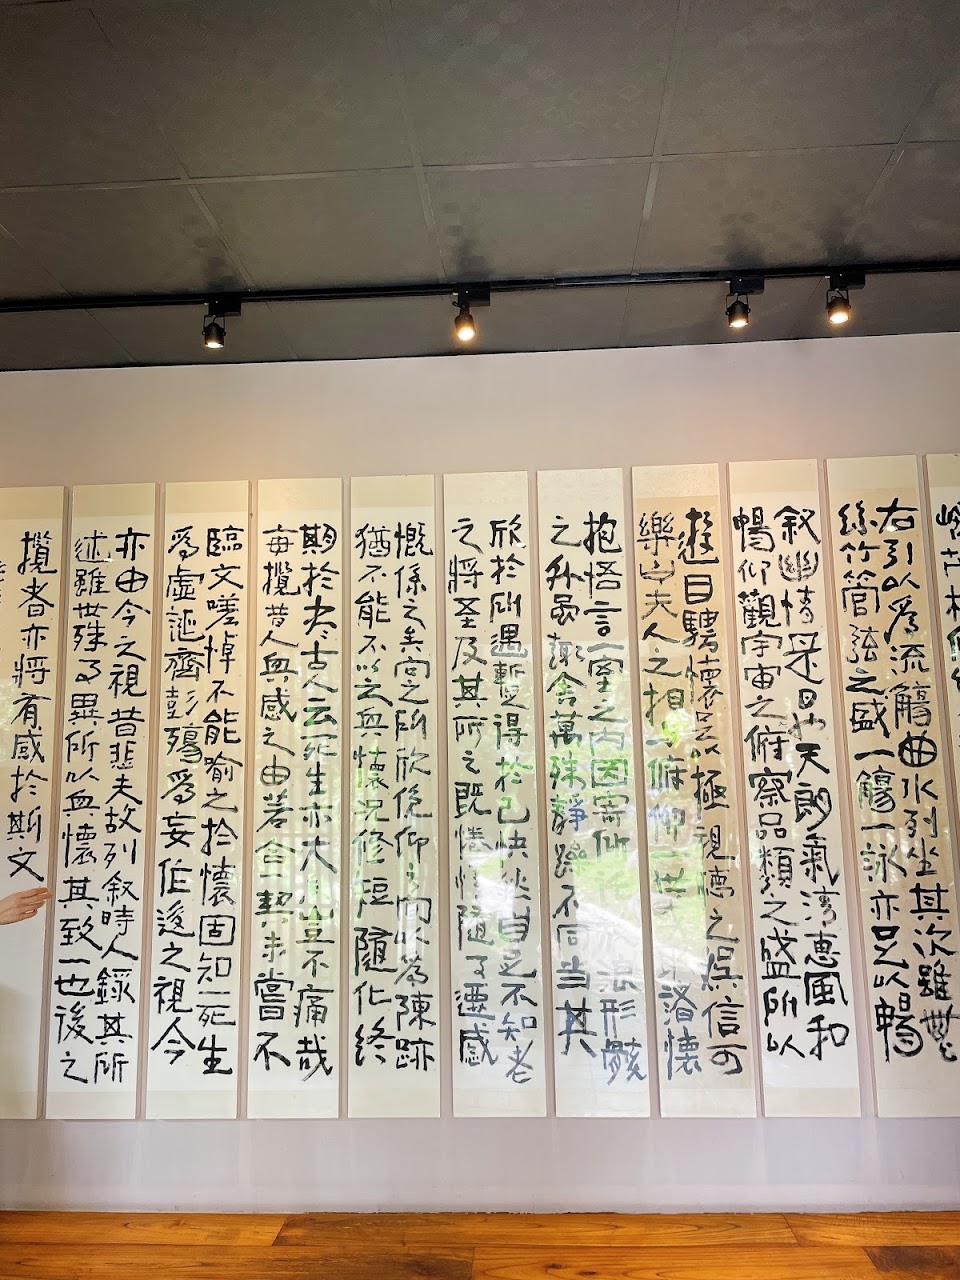 右引以爲流觴曲水列坐其次雖無
絲竹管弦之盛一觴一詠亦足以暢
敘幽情是日也天朗氣清惠風和
暢仰觀宇宙之俯察品類之盛所以
遊目騁懷足以極視聽之娛信可
樂也夫人之相與俯仰一世取諸懷
抱悟言一室之內因寄所放浪形骸
之外雖趣舍萬殊靜躁不同當其
欣於所遇暫得於己快然自足不知老
之將至及其所之既惓情隨事遷感
慨係之矣向之所欣俛仰之間以爲陳跡
猶不能不以之興懷況修短隨化終
期於盡古人云死生亦大矣豈不痛哉
每攬昔人興感之由若合一契未嘗不
臨文嗟悼不能喻之於懷固知一死生
爲虛誕齊彭殤爲妄作後之視今
亦由今之視昔悲夫故列敘時人錄其所
述雖世殊事異所以興懷其致一也後之
攬者亦將有感於斯文